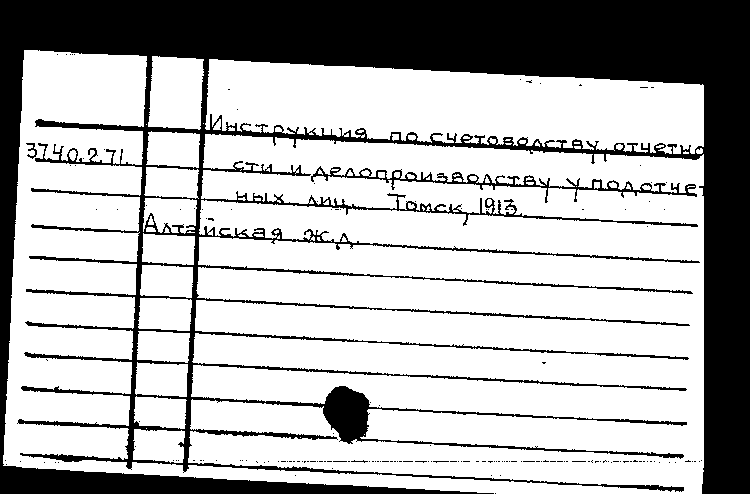 Инструкция по счетоводству, отчетно
37.40.2.71. сти и делопроизводству у подотчет
ных лиц. Томск, 1913.
Алтайская ж.д.